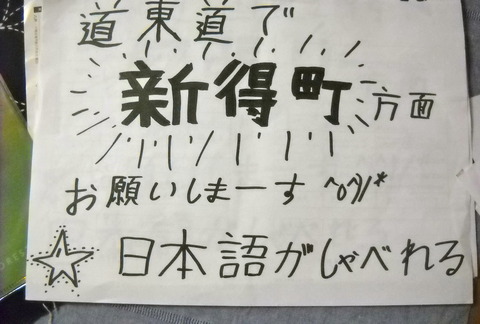 道東道で
新得町方面
お願いしまーす ^o^)//*
☆日本語がしゃべれる